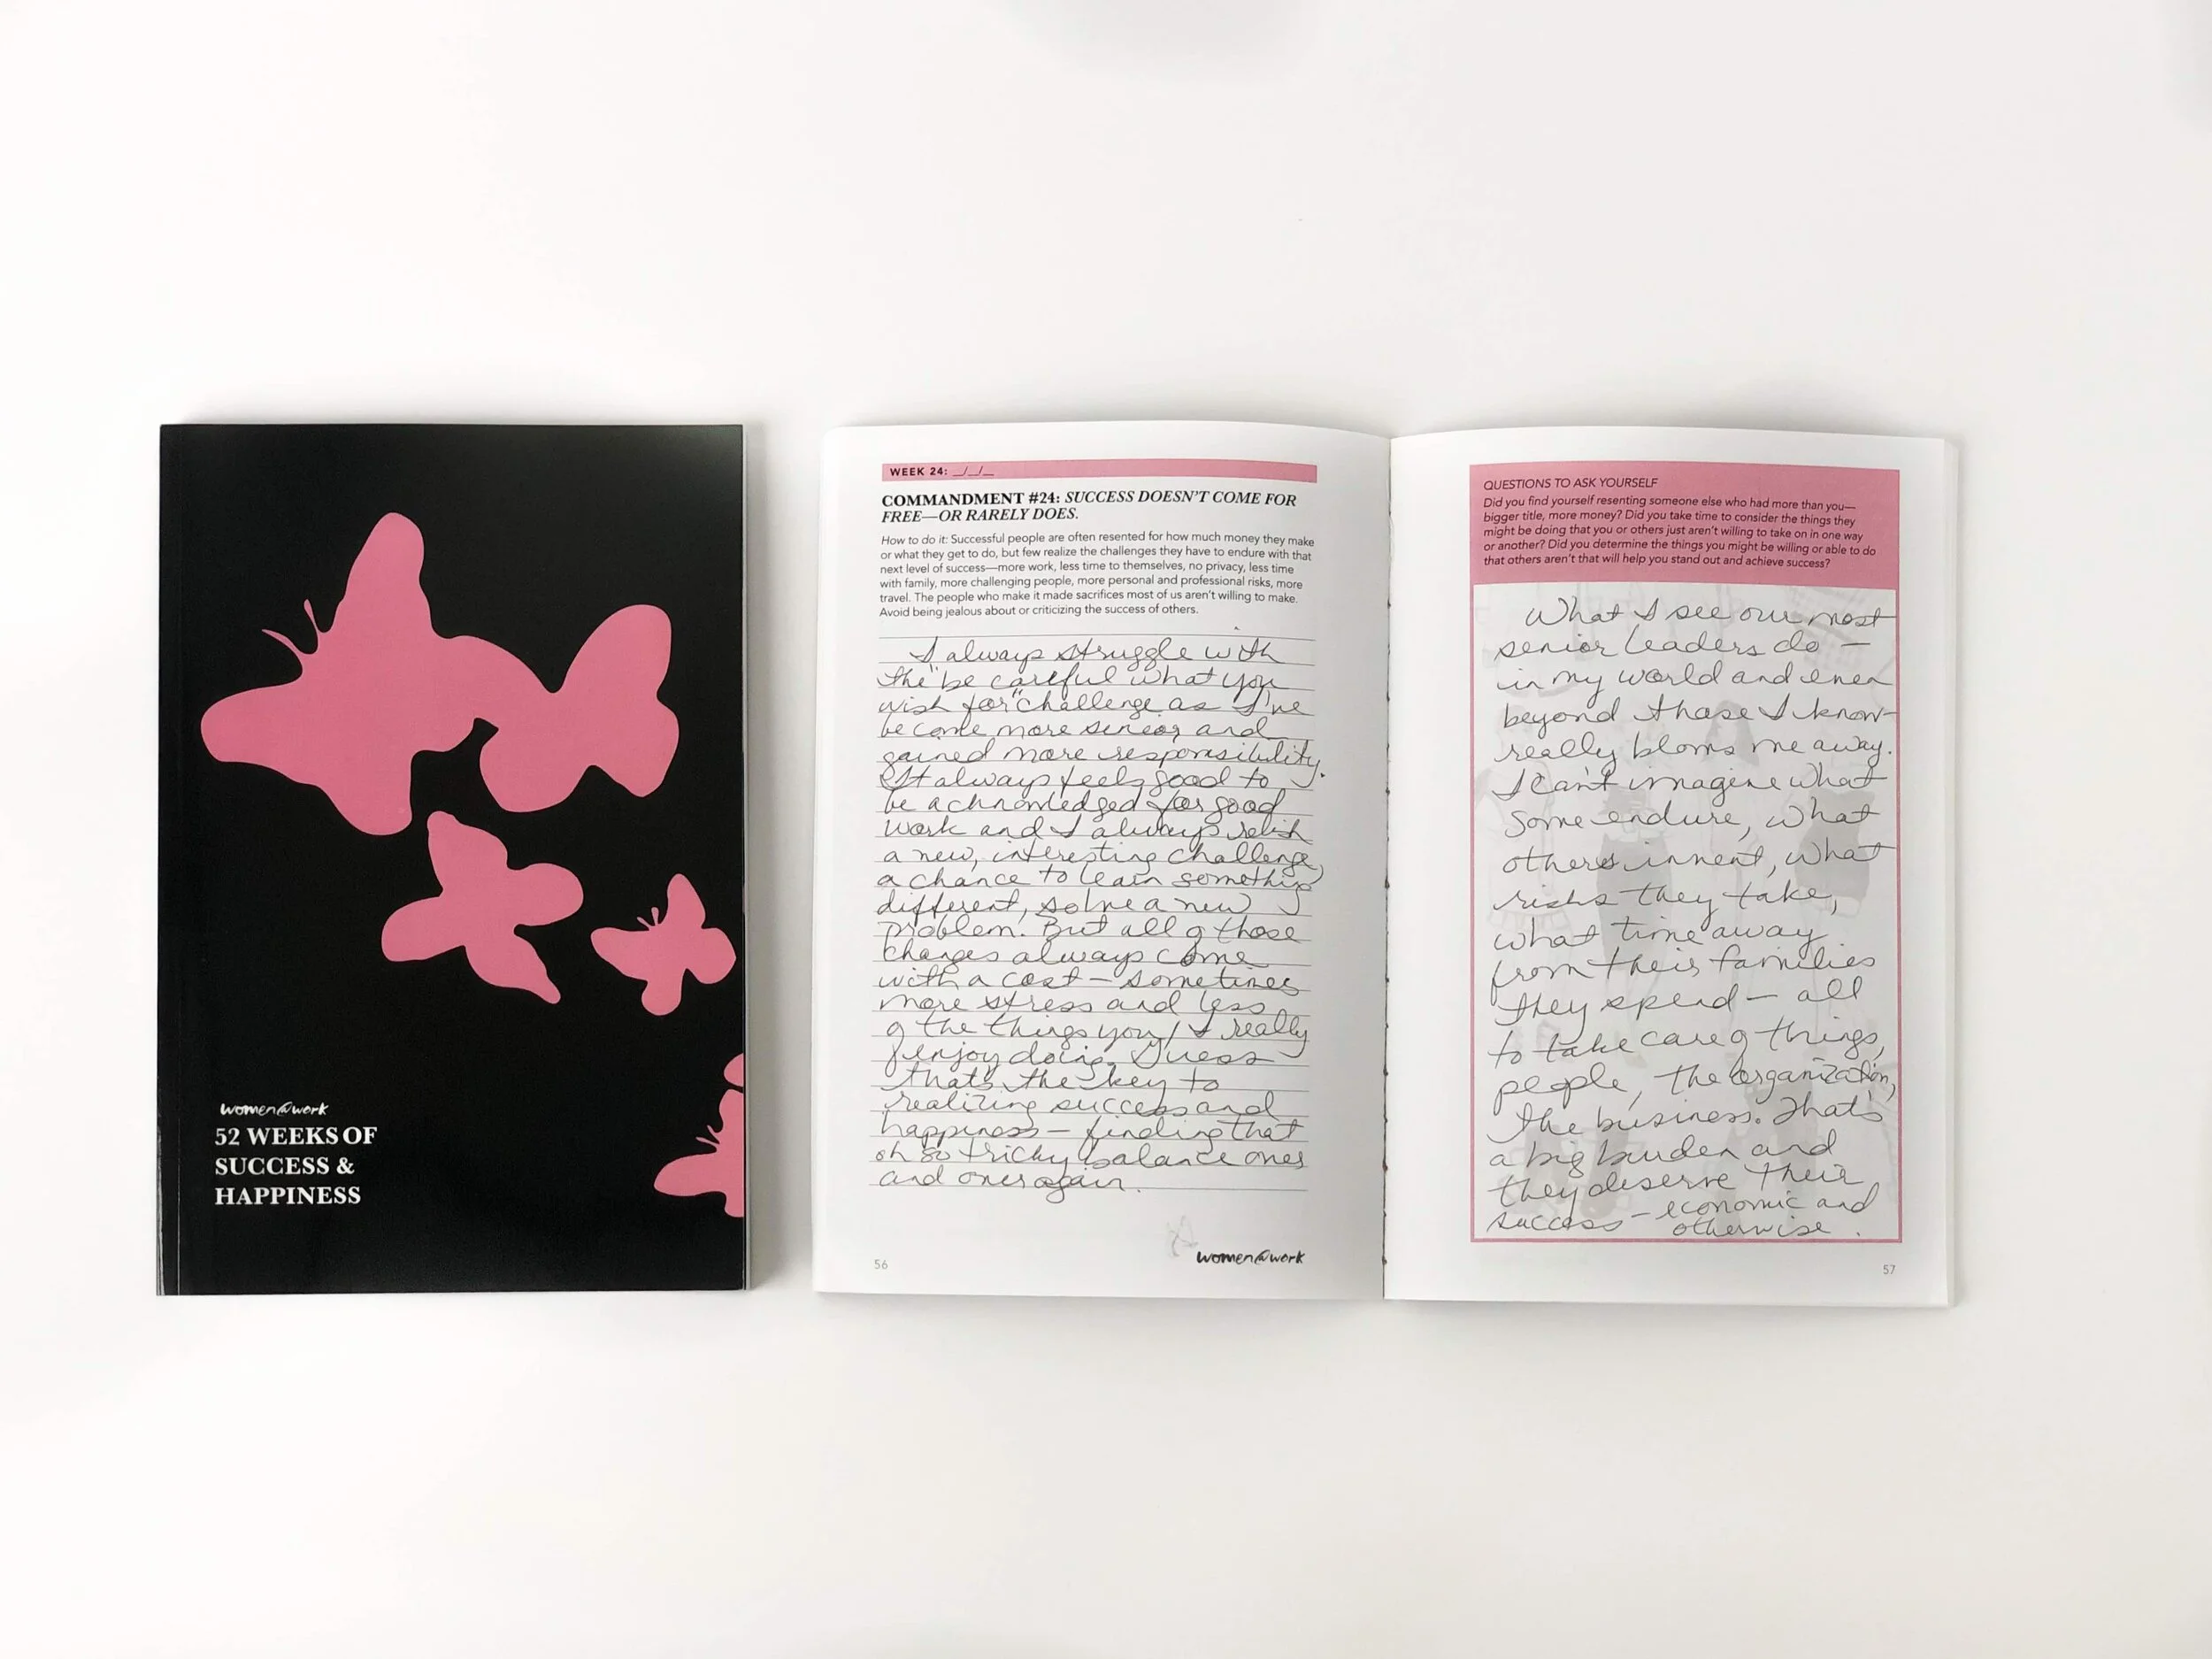 women@work
52 WEEKS OF
SUCCESS &
HAPPINESS
WEEK 24: _/_/_
COMMANDMENT #24: SUCCESS DOESN'T COME FOR
FREE—OR RARELY DOES.
How to do it: Successful people are often resented for how much money they make
or what they get to do, but few realize the challenges they have to endure with that
next level of success—more work, less time to themselves, no privacy, less time
with family, more challenging people, more personal and professional risks, more
travel. The people who make it made sacrifices most of us aren't willing to make.
Avoid being jealous about or criticizing the success of others.
I always struggle with
the "be careful what you
wish for" challenge as I've
become more senior and
gained more responsibility.
It always feels good to
be acknowledged for good
work and I always relish
a new, interesting challenge,
a chance to learn something
different, solve a new
problem. But all of those
changes always come
with a cost — sometimes
more stress and less
of the things you / I really
enjoy doing. Guess
that's the key to
realizing success and
happiness — finding that
oh so tricky balance over
and over again.
women@work
56
QUESTIONS TO ASK YOURSELF
Did you find yourself resenting someone else who had more than you—
bigger title, more money? Did you take time to consider the things they
might be doing that you or others just aren't willing to take on in one way
or another? Did you determine the things you might be willing or able to do
that others aren't that will help you stand out and achieve success?
What I see our most
senior leaders do —
in my world and even
beyond those I know—
really blows me away.
I can't imagine what
some endure, what
others invent, what
risks they take,
what time away
from their families
they spend — all
to take care of things,
people, the organization,
the business. That's
a big burden and
they deserve their
success — economic and
otherwise.
57